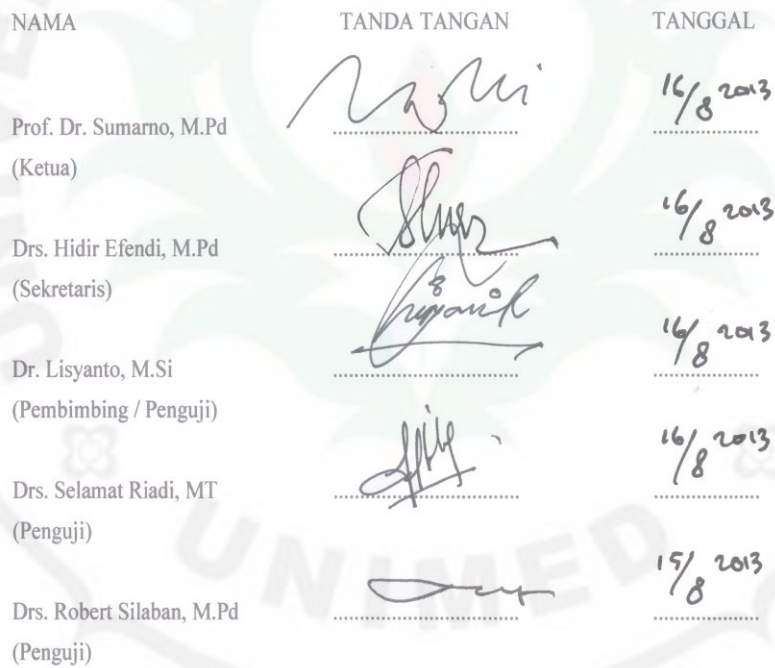 NAMA TANDA TANGAN TANGGAL
16/8 2013
Prof. Dr. Sumarno, M.Pd
(Ketua)
16/8 2013
Drs. Hidir Efendi, M.Pd
(Sekretaris)
16/8 2013
Dr. Lisyanto, M.Si
(Pembimbing / Penguji)
16/8 2013
Drs. Selamat Riadi, MT
(Penguji)
15/8 2013
Drs. Robert Silaban, M.Pd
(Penguji)
UNIMED